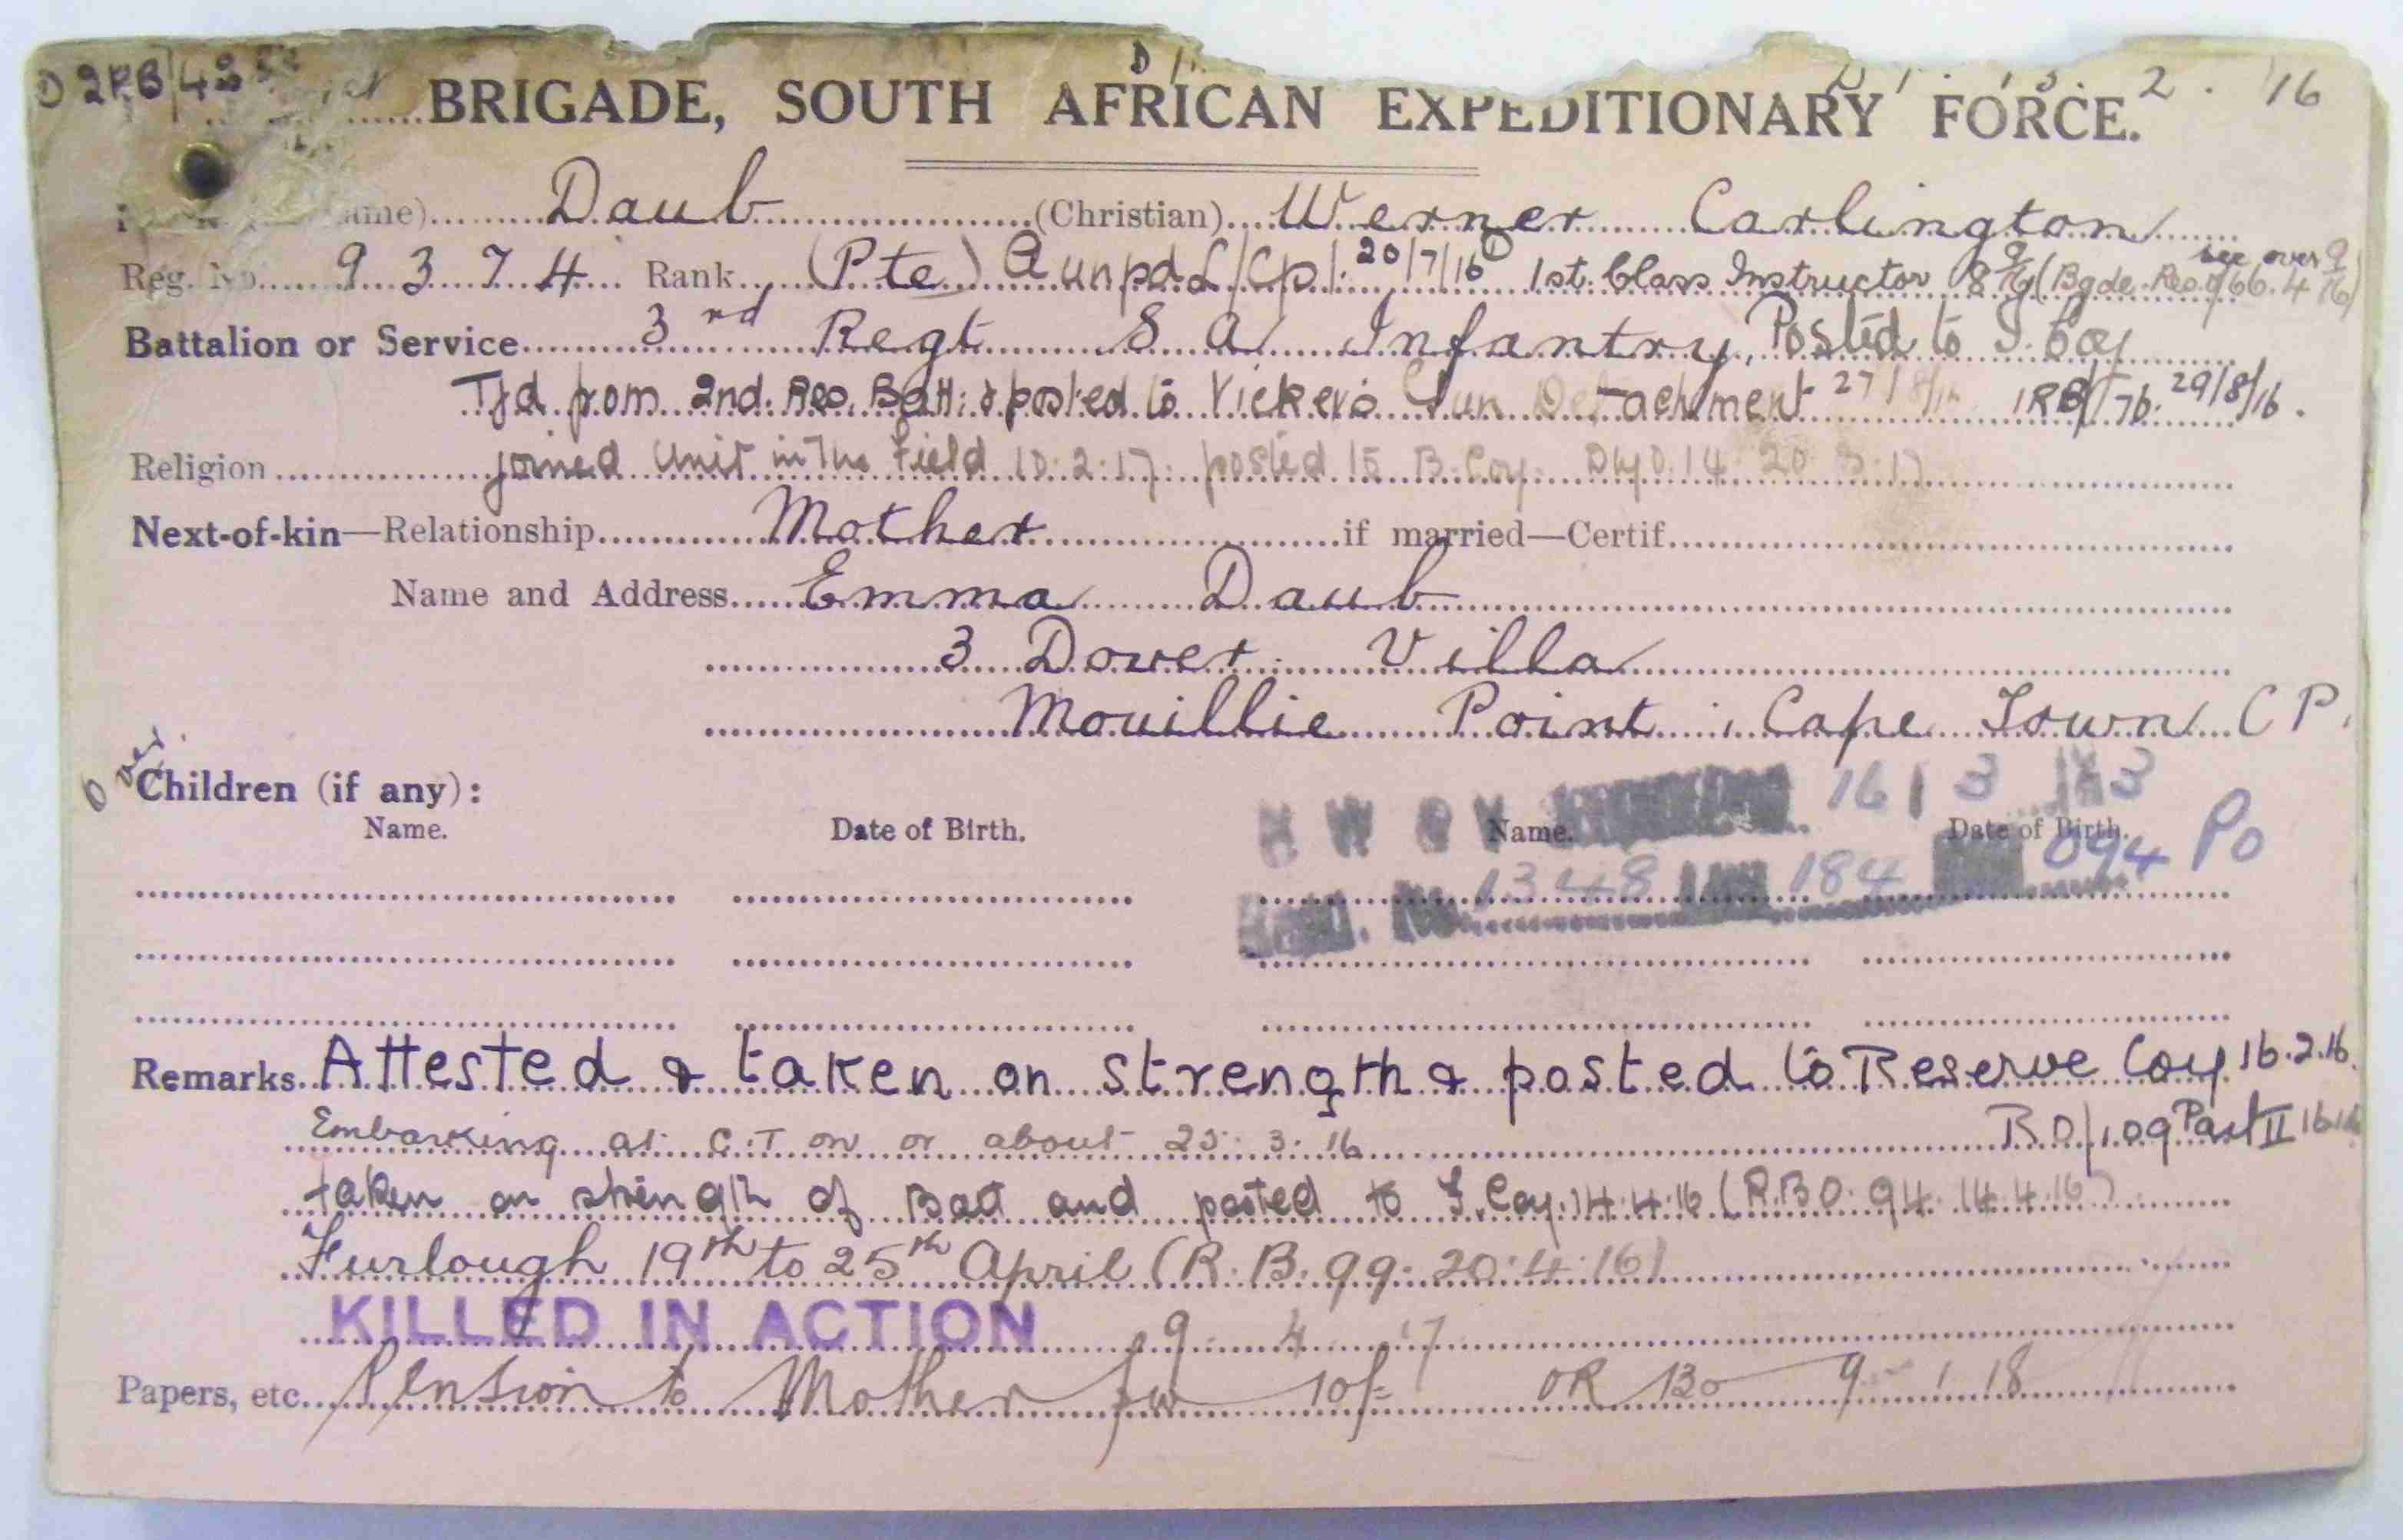 D 2RB/48
2. 16
BRIGADE, SOUTH AFRICAN EXPEDITIONARY FORCE.
ame) Daub (Christian) Werner Carlington
Reg. No. 9374 Rank (Pte) A unpd L/Cpl. 20/7/16 1st Class Instructor see over
Battalion or Service 3rd Regt S A Infantry, Posted to Coy
Tfd from 2nd. Res. Batt: & posted to Vickers Gun Detachment 27/8/16 1RB/76. 29/8/16.
Religion joined Unit in The Field 10:2:17: posted B. Coy. 14 20 3:17
Next-of-kin—Relationship Mother if married—Certif.
Name and Address Emma Daub
3 Dover Villa
Mouillie Point, Cape Town C P.
over
Children (if any):
Name. Date of Birth. Name. Date of Birth.
16 3
1348 184 094 Po
Remarks Attested & taken on strength & posted to Reserve Coy 16.2.16.
Embarking at C.T on or about 25.3.16 R.O/109 Part II
taken on strength of Batt and posted to Coy. 14.4.16 (R.B.O. 94. 14.4.16)
Furlough 19th to 25th April (R.B. 99. 20.4.16)
KILLED IN ACTION 9 4 17
Papers, etc. Pension to Mother 10/= OR 130 9 1 18